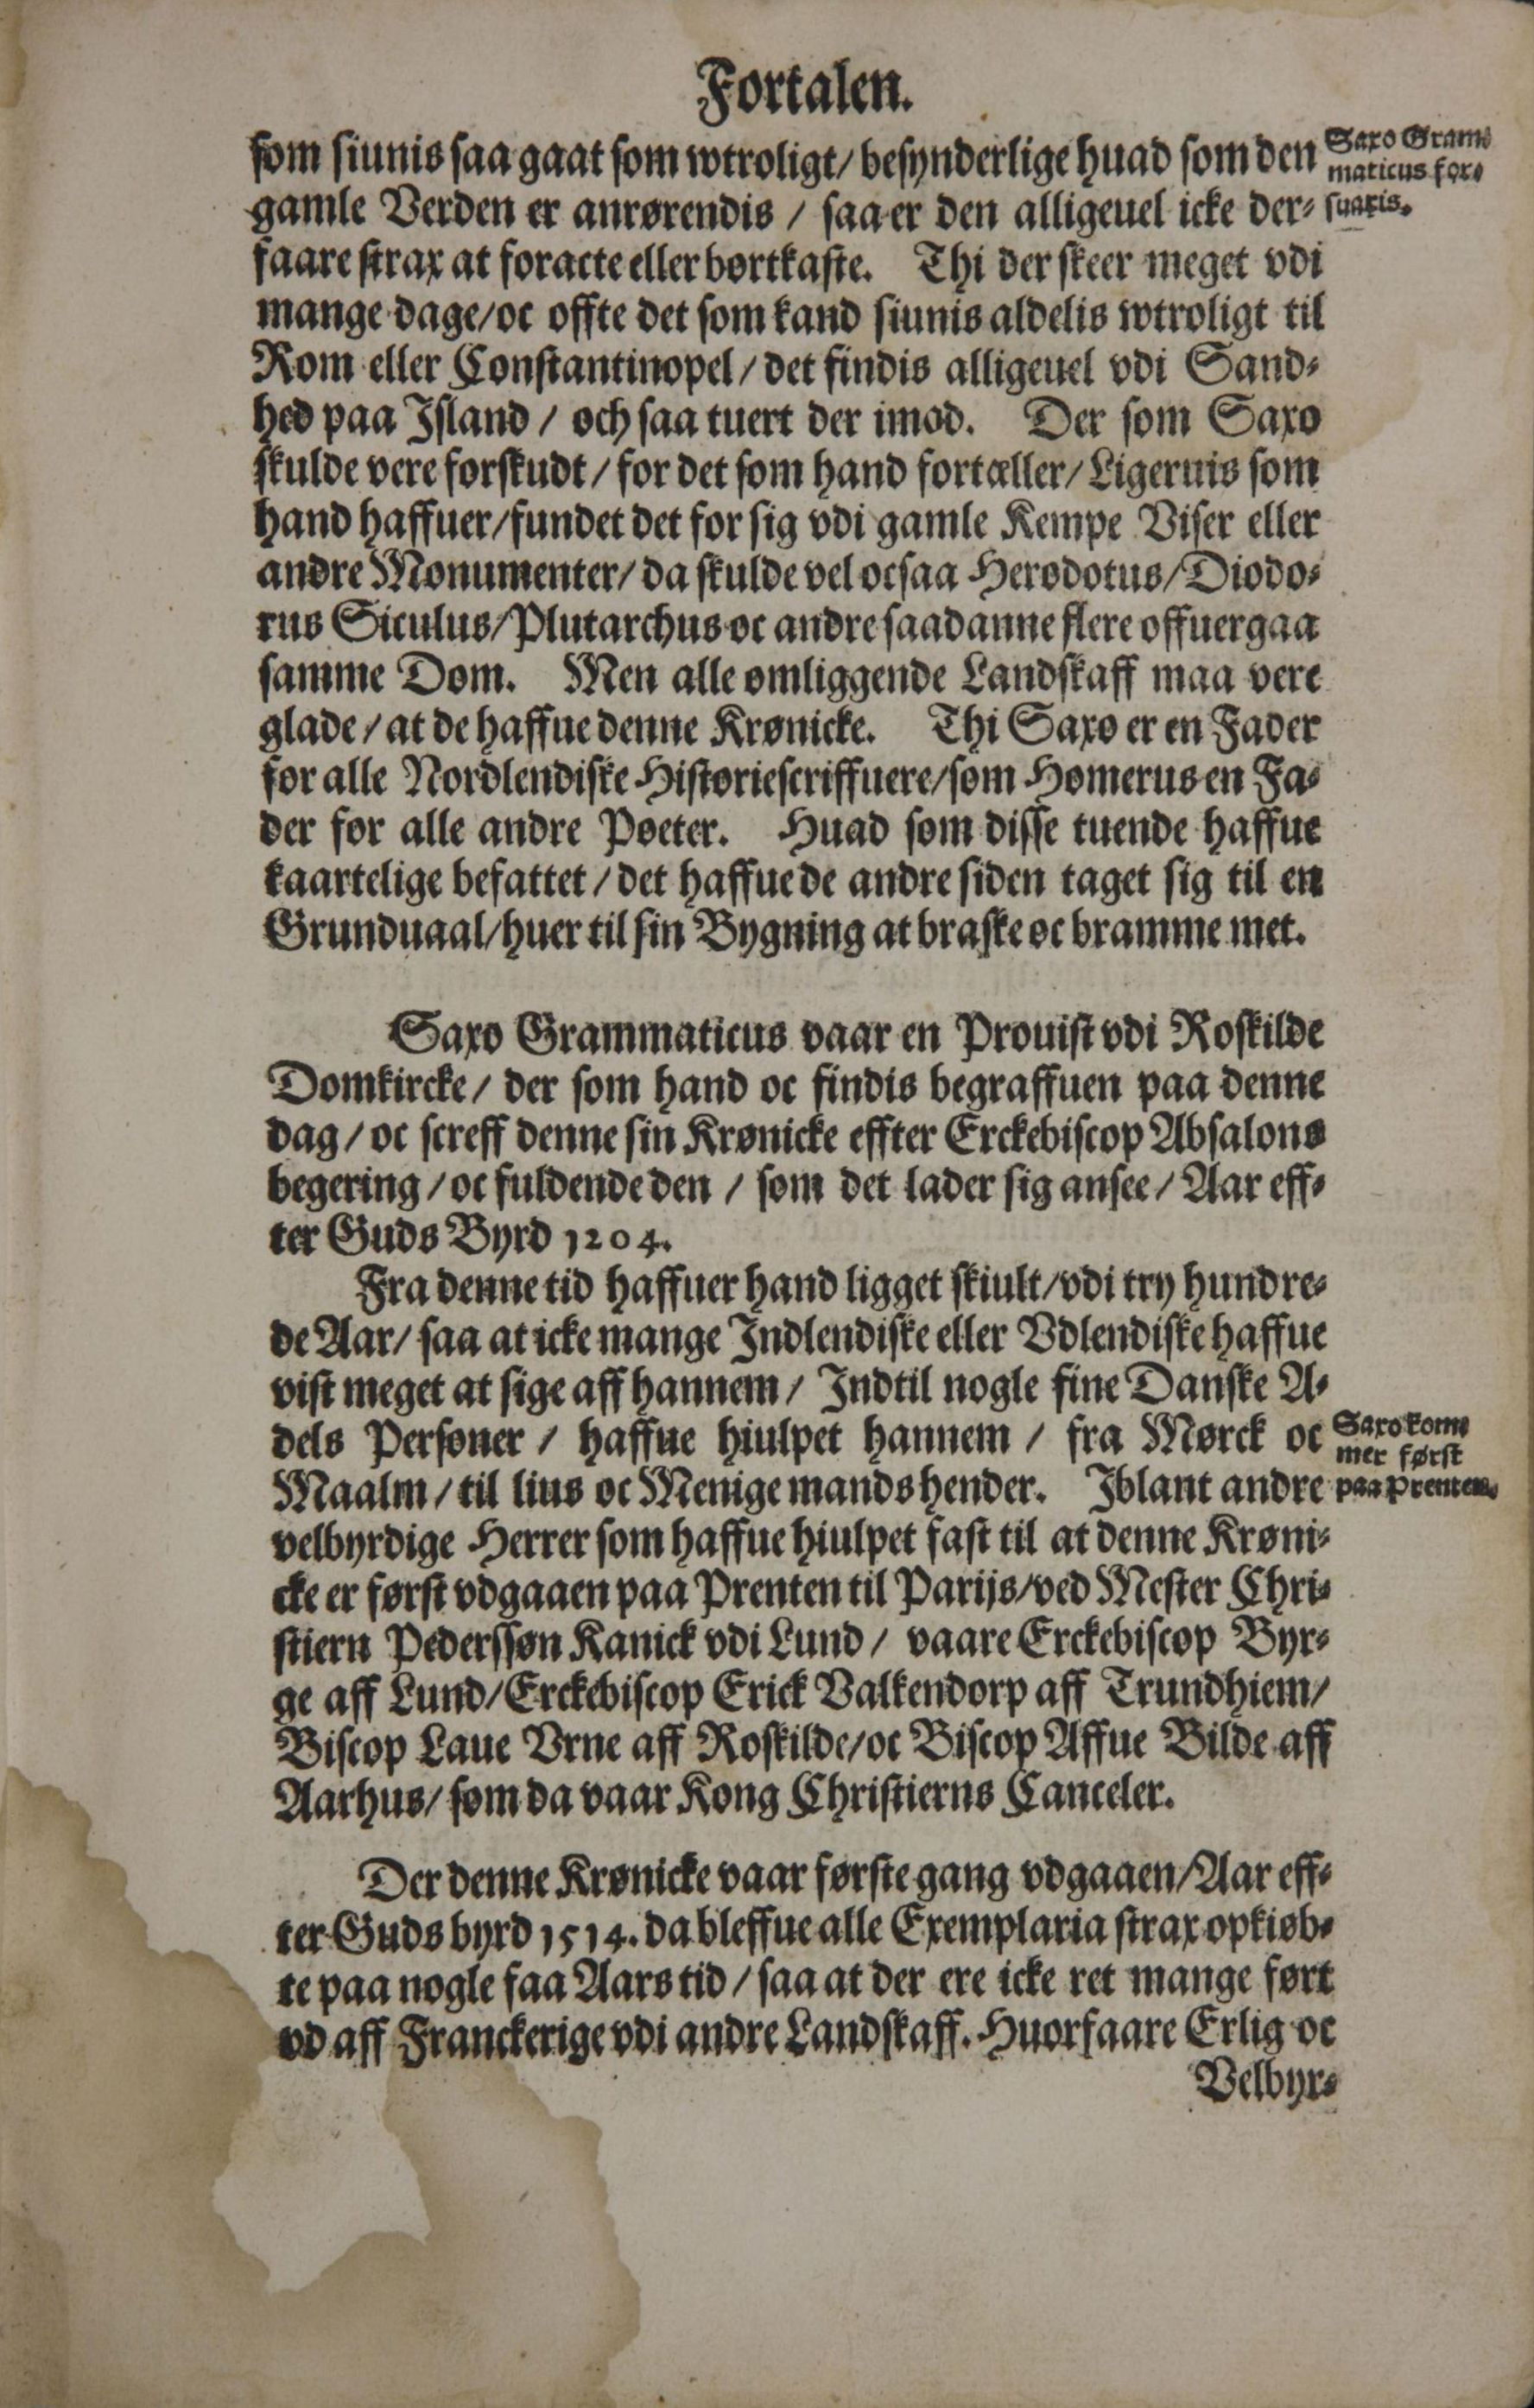 Fortalen.
som siunis saa gaat som wtroligt/ besynderlige huad som den
gamle Verden er anrørendis / saa er den alligeuel icke der⸗
faare strax at foracte eller bortkaste. Thi der skeer meget vdi
mange dage/ oc offte det som kand siunis aldelis wtroligt til
Rom eller Constantinopel / det findis alligeuel vdi Sand⸗
hed paa Island / och saa tuert der imod. Der som Saxo
skulde vere forskudt / for det som hand fortæller/ Ligeruis som
hand haffuer/ fundet det for sig vdi gamle Kempe Viser eller
andre Monumenter/ da skulde vel ocsaa Herodotus/ Diodo⸗
rus Siculus/ Plutarchus oc andre saadanne flere offuergaa
samme Dom. Men alle omliggende Landskaff maa vere
glade / at de haffue denne Krønicke. Thi Saxo er en Fader
for alle Nordlendiske Historiescriffuere/ som Homerus en Fa⸗
der for alle andre Poeter. Huad som disse tuende haffue
kaartelige befattet / det haffue de andre siden taget sig til en
Grunduaal/ huer til sin Bygning at braske oc bramme met.
Saxo Gram⸗
maticus for⸗
suaris.
Saxo Grammaticus vaar en Prouist vdi Roskilde
Domkircke / der som hand oc findis begraffuen paa denne
dag / oc screff denne sin Krønicke effter Erckebiscop Absalons
begering / oc fuldende den / som det lader sig ansee / Aar eff⸗
ter Guds Byrd 1204.
Fra denne tid haffuer hand ligget skiult/ vdi try hundre⸗
de Aar/ saa at icke mange Indlendiske eller Vdlendiske haffue
vist meget at sige aff hannem / Indtil nogle fine Danske A⸗
dels Personer / haffue hiulpet hannem / fra Mørck oc
Maalm / til lius oc Menige mands hender. Iblant andre
velbyrdige Herrer som haffue hiulpet fast til at denne Krøni⸗
cke er først vdgaaen paa Prenten til Parijs/ ved Mester Chri⸗
stiern Pederssøn Kanick vdi Lund / vaare Erckebiscop Byr⸗
ge aff Lund/ Erckebiscop Erick Valkendorp aff Trundhiem/
Biscop Laue Vrne aff Roskilde/ oc Biscop Affue Bilde aff
Aarhus/ som da vaar Kong Christierns Canceler.
Saxo kom⸗
mer først
paa Prenten.
Der denne Krønicke vaar første gang vdgaaen/ Aar eff⸗
ter Guds byrd 1514. da bleffue alle Exemplaria strax opkiøb⸗
te paa nogle faa Aars tid / saa at der ere icke ret mange ført
vd aff Franckerige vdi andre Landskaff. Huorfaare Erlig oc
Velbyr⸗